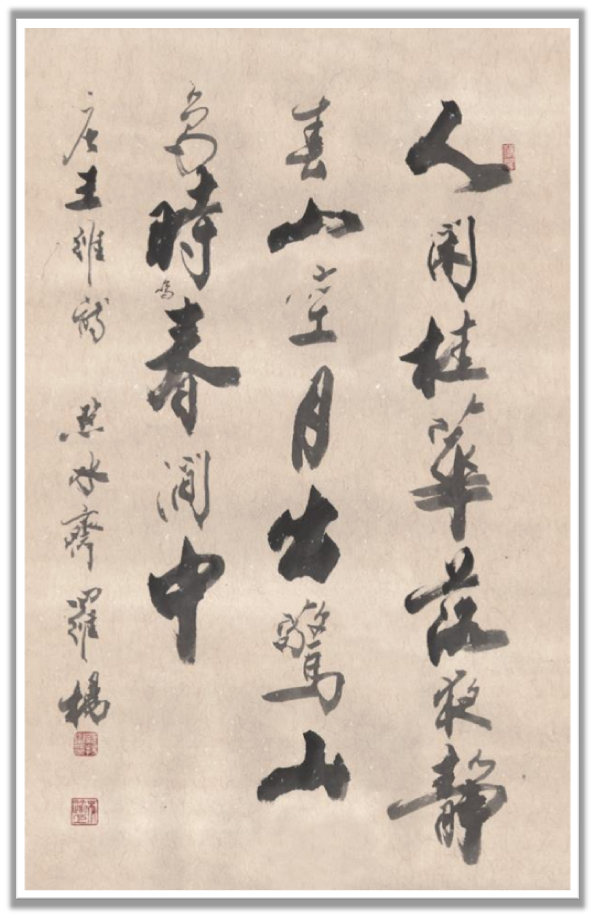 人閑桂華落夜靜
春山空月出驚山
鳥時鳴春澗中
唐王維詩 齋羅楊